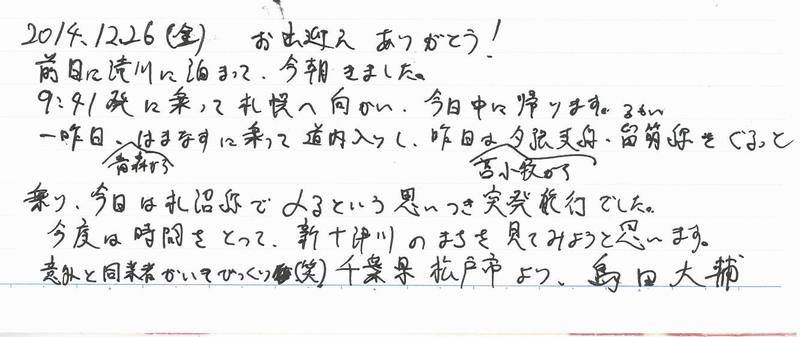 2014.12.26(金) お出迎え ありがとう!
前日に滝川に泊まって、今朝きました。
9:41発に乗って札幌へ向かい、今日中に帰ります。
るもい
一昨日、はまなすに乗って道内入りし、昨日は夕張支線・留萌線をぐるっと
青森から 苫小牧から
乗り、今日は札沼線で〆るという思いつき突発旅行でした。
今度は時間をとって、新十津川のまちを見てみようと思います。
意外と同業者がいてびっくり(笑) 千葉県松戸市より、島田大輔